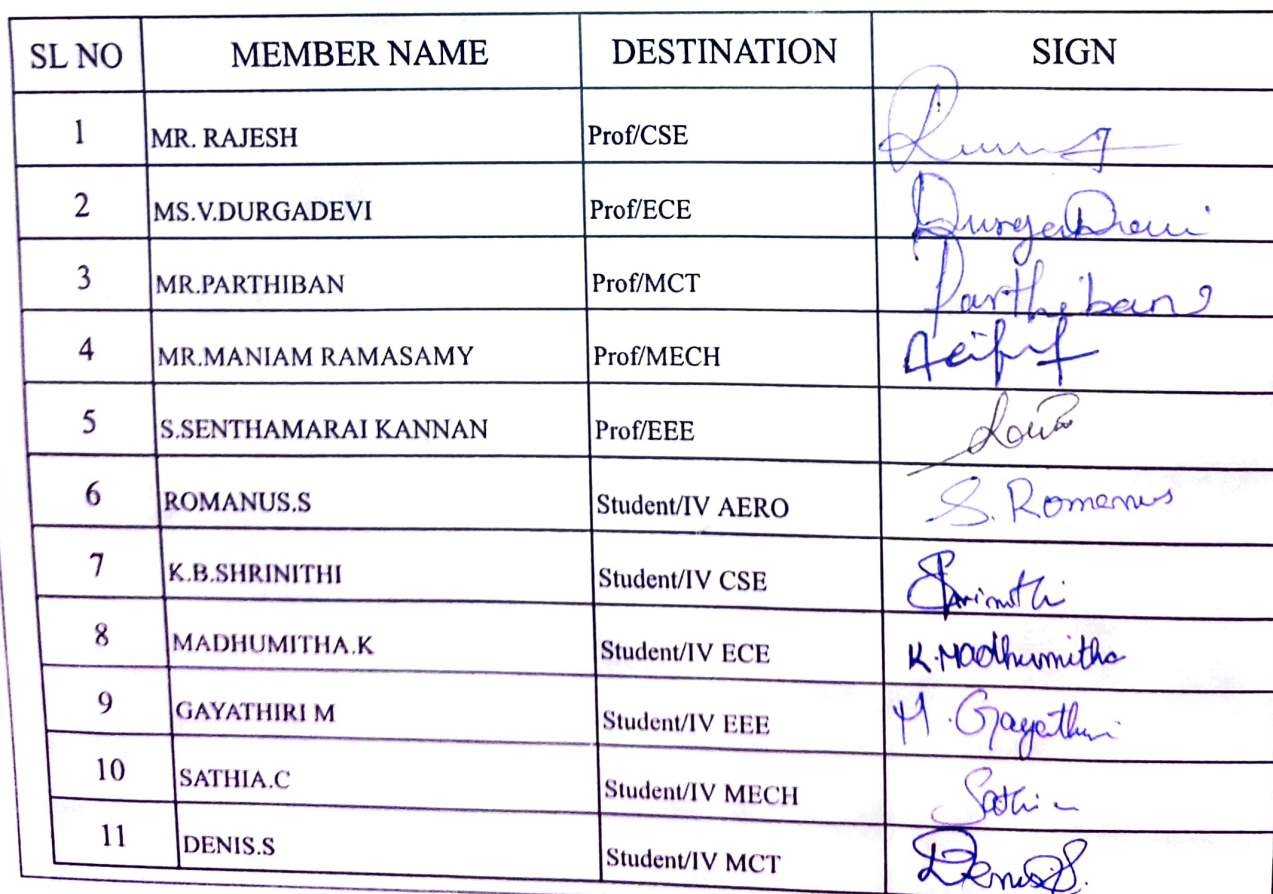 SL NO MEMBER NAME DESTINATION SIGN
1 MR. RAJESH Prof/CSE
2 MS.V.DURGADEVI Prof/ECE DurgaDevi
3 MR.PARTHIBAN Prof/MCT Parthiban
4 MR.MANIAM RAMASAMY Prof/MECH
5 S.SENTHAMARAI KANNAN Prof/EEE
6 ROMANUS.S Student/IV AERO S. Romanus
7 K.B.SHRINITHI Student/IV CSE Shrinithi
8 MADHUMITHA.K Student/IV ECE K.Madhumitha
9 GAYATHIRI M Student/IV EEE M. Gayathiri
10 SATHIA.C Student/IV MECH Sathia
11 DENIS.S Student/IV MCT Denis.S.